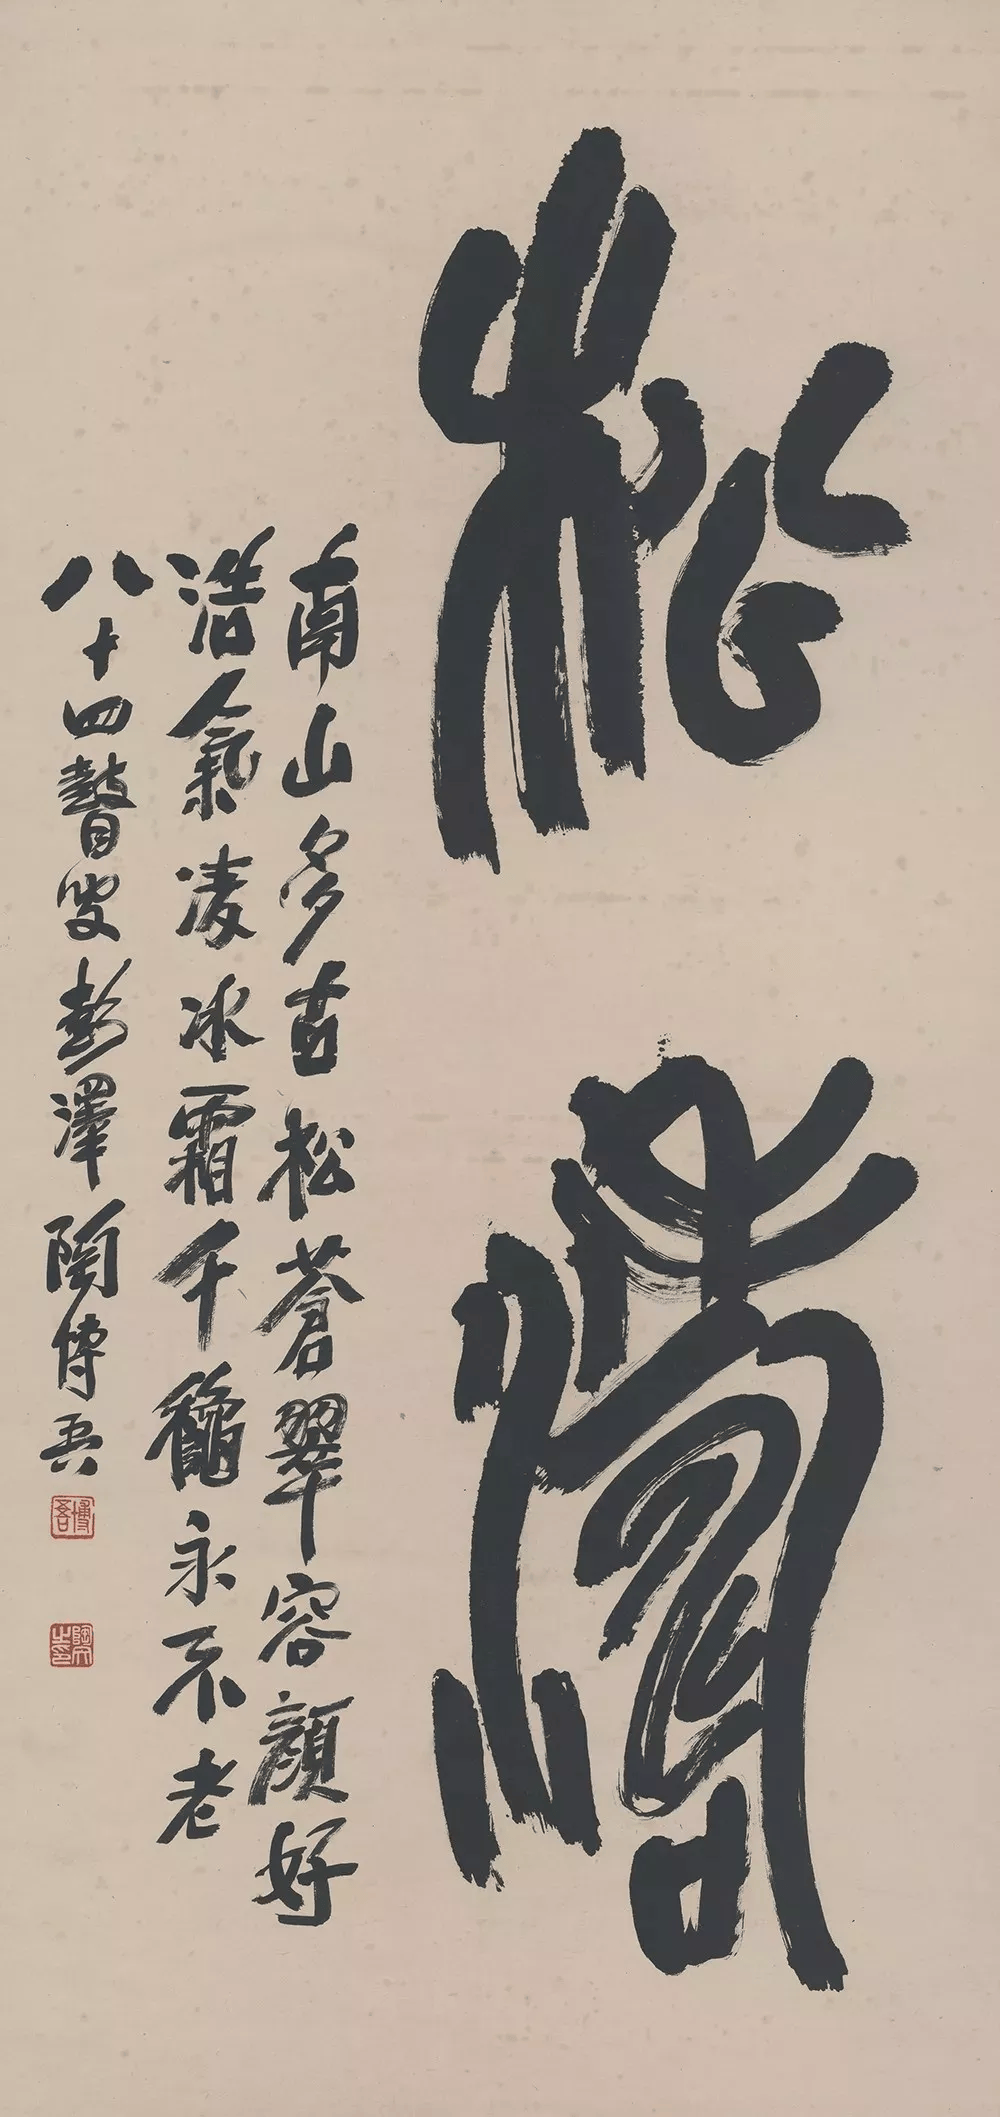 松濤
南山多古松蒼翠容顏好
浩氣凌冰霜千龝永不老
八十四瞽叟彭澤陶博吾
博吾
陶文之印